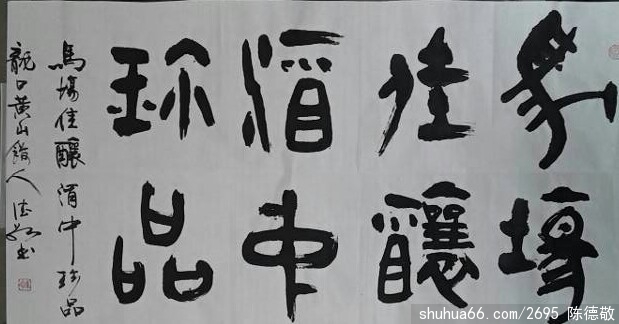 馬塲
佳釀
酒中
珍品
馬塲佳釀酒中珍品
龍口黄山館人德敬书
shuhua66.com/2695 陈德敬